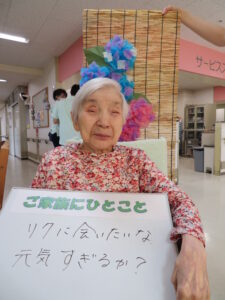 サービス
ご家族にひとこと
リクに会いたいな
元気すぎるか？